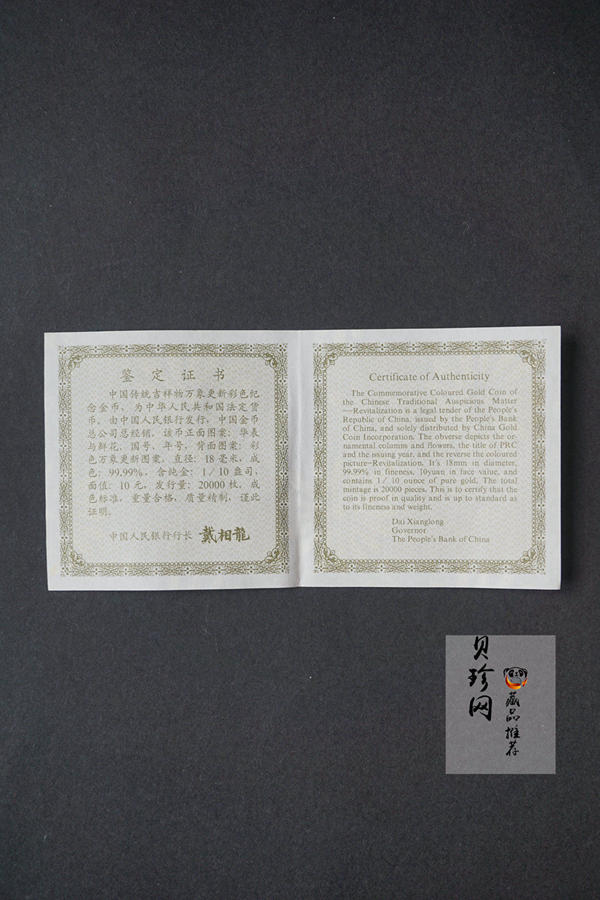 鉴定证书
中国传统吉祥物万象更新彩色纪
念金币，为中华人民共和国法定货
币，由中国人民银行发行，中国金币
总公司总经销。该币正面图案：华表
与鲜花、国号、年号，背面图案：彩
色万象更新图案。直径：18毫米，成
色：99.99%，含纯金：1/10盎司，
面值：10元，发行量：20000枚。成
色标准，重量合格，质量精制，谨此
证明。
中国人民银行行长 戴相龍
Certificate of Authenticity
The Commemorative Coloured Gold Coin of
the Chinese Traditional Auspicious Matter
—Revitalization is a legal tender of the People's
Republic of China, issued by the People's Bank
of China, and solely distributed by China Gold
Coin Incorporation. The obverse depicts the or-
namental columns and flowers, the title of PRC
and the issuing year, and the reverse the coloured
picture—Revitalization. It's 18mm in diameter,
99.99% in fineness, 10yuan in face value, and
contains 1/10 ounce of pure gold. The total
mintage is 20000 pieces. This is to certify that the
coin is proof in quality and is up to standard as
to its fineness and weight.
Dai Xianglong
Governor
The People's Bank of China
贝珍网
藏品推荐